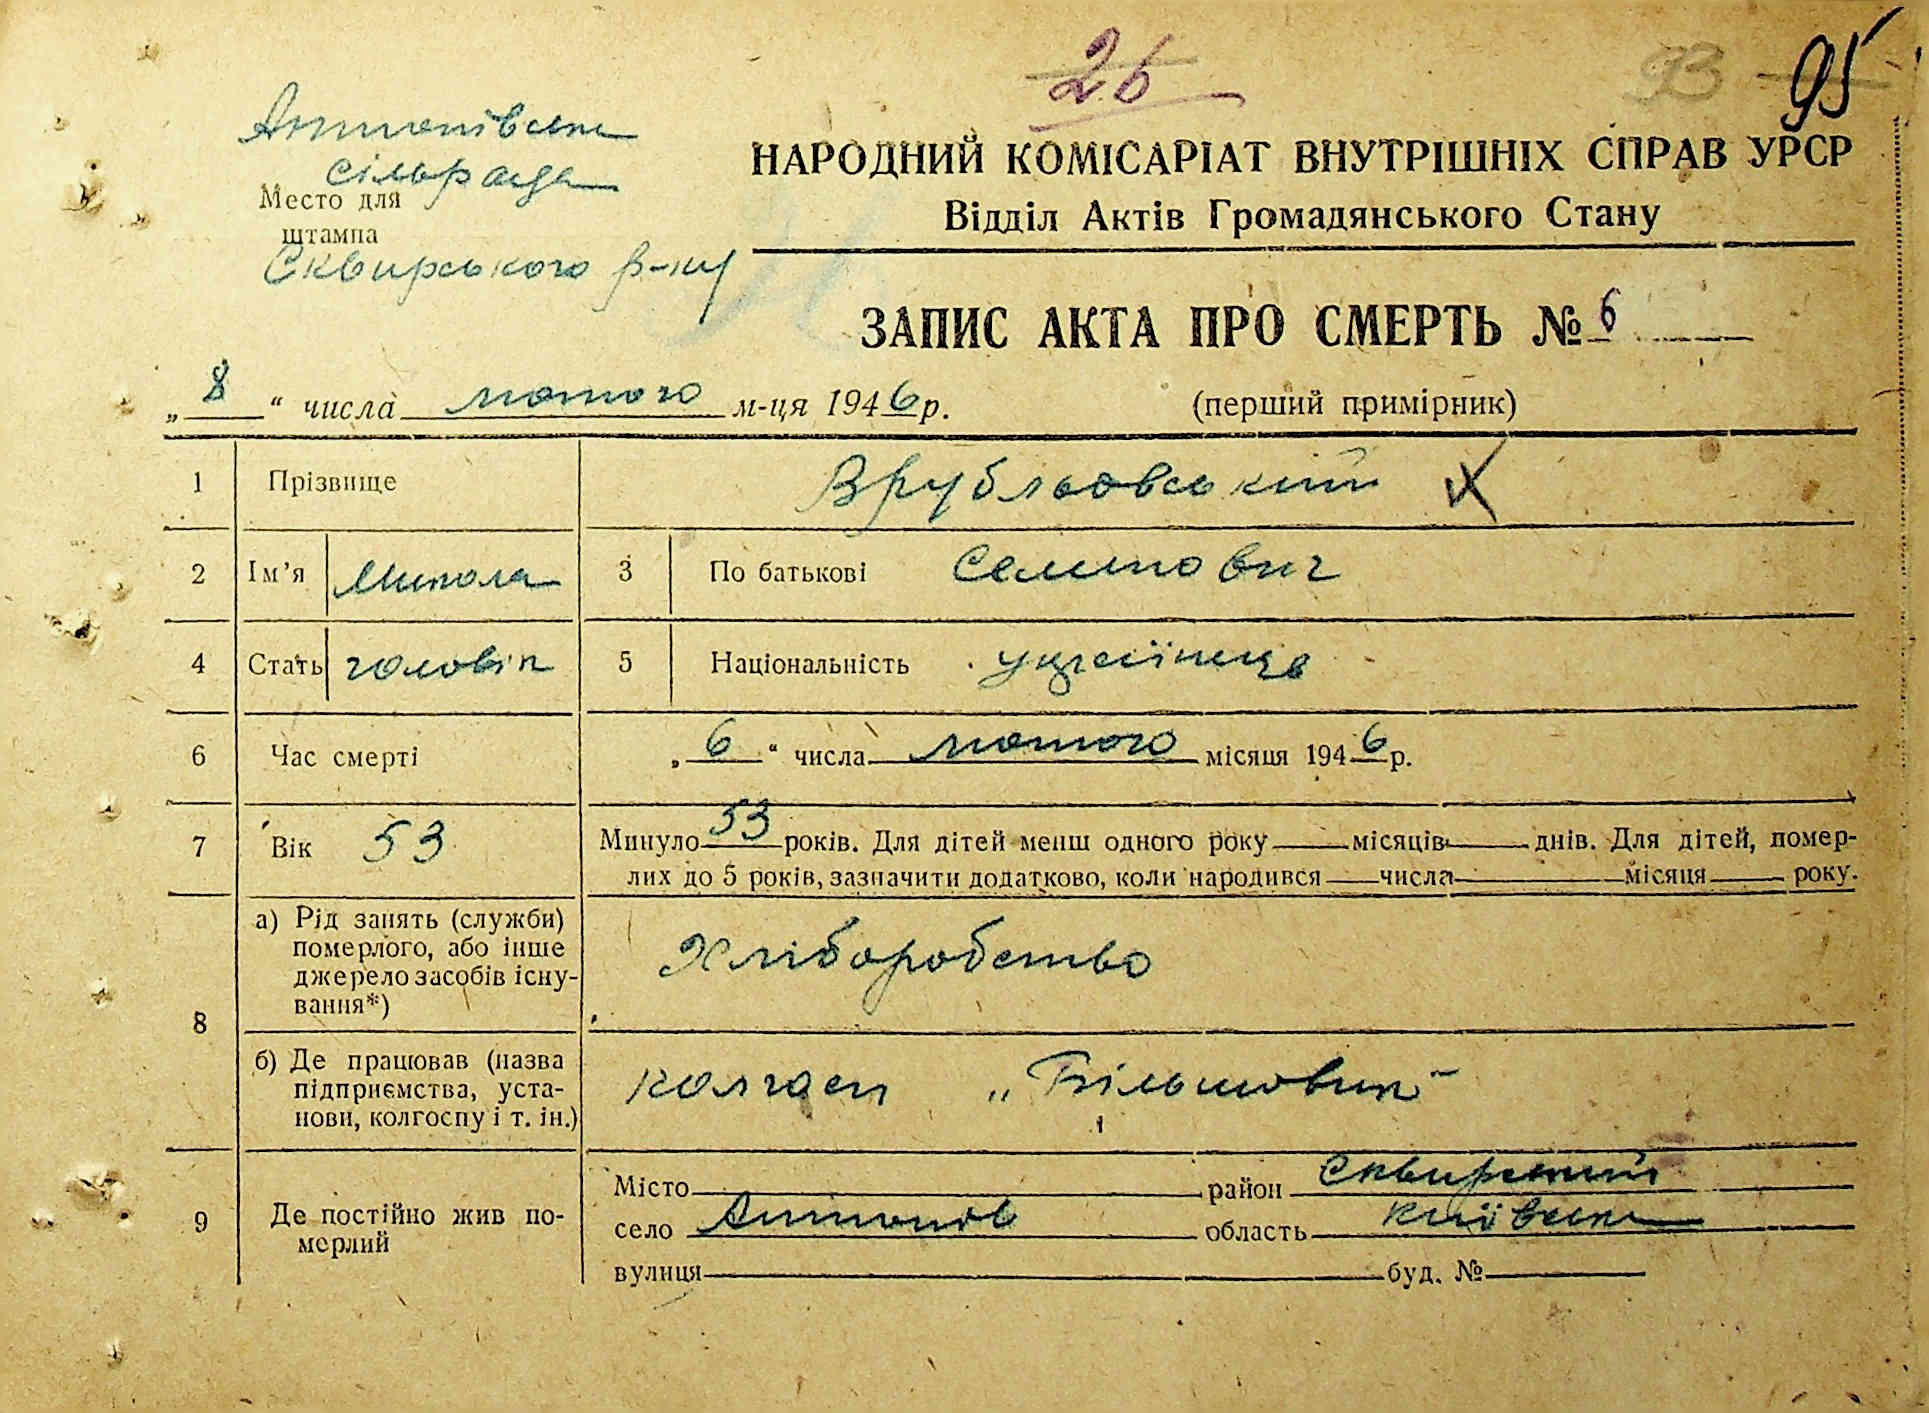 26
93 95
Антонівська
сільрада
Место для
штампа
Сквирського р-ну
НАРОДНИЙ КОМІСАРІАТ ВНУТРІШНІХ СПРАВ УРСР
Відділ Актів Громадянського Стану
ЗАПИС АКТА ПРО СМЕРТЬ № 6
„8“ числа лютого м-ця 1946 р. (перший примірник)
1 Прізвище Врубльовський
2 Ім'я Микола 3 По батькові Семенович
4 Стать чоловік 5 Національність українець
6 Час смерті „6“ числа лютого місяця 1946 р.
7 Вік 53 Минуло 53 років. Для дітей менш одного року місяців днів. Для дітей, помер-
лих до 5 років, зазначити додатково, коли народився числа місяця року.
8 а) Рід занять (служби)
померлого, або інше
джерело засобів існу-
вання*)
Хліборобство
б) Де працював (назва
підприємства, уста-
нови, колгоспу і т. ін.)
колгосп „Більшовик"
9 Де постійно жив по-
мерлий
Місто район Сквирський
село Антонов область Київська
вулиця буд. №